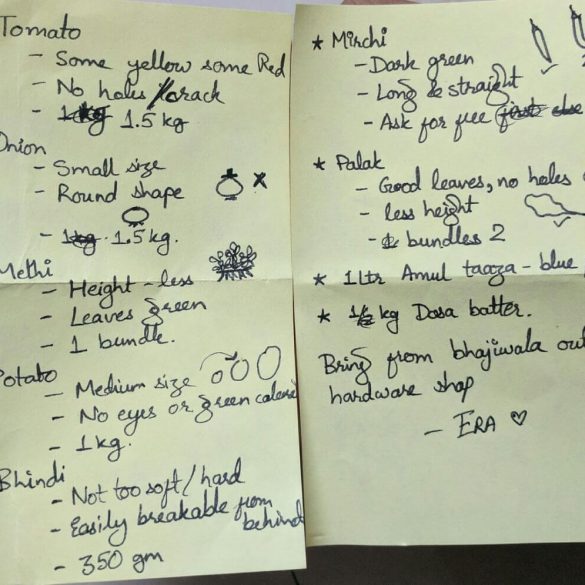 Tomato
- Some yellow some Red
- No holes / crack
- 1.5 kg
Onion
- Small size
- Round shape
- 1.5 kg.
Methi
- Height - less
- Leaves green
- 1 bundle.
Potato
- Medium size
- No eyes or green
- 1kg.
Bhindi
- Not too soft / hard
- Easily breakable from
behind
- 350 gm
* Mirchi
- Dark green
- Long & straight
- Ask for free
* Palak
- Good leaves, no holes
- less height
- bundles 2
* 1 Ltr Amul taaza - blue
* kg Dosa batter.
Bring from bhajiwala
hardware shop
- ERA ♡